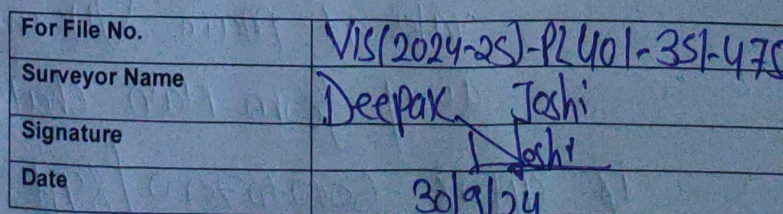 For File No. VIS(2024-25)-PL401-351-475
Surveyor Name Deepak Joshi
Signature Joshi
Date 30/9/24